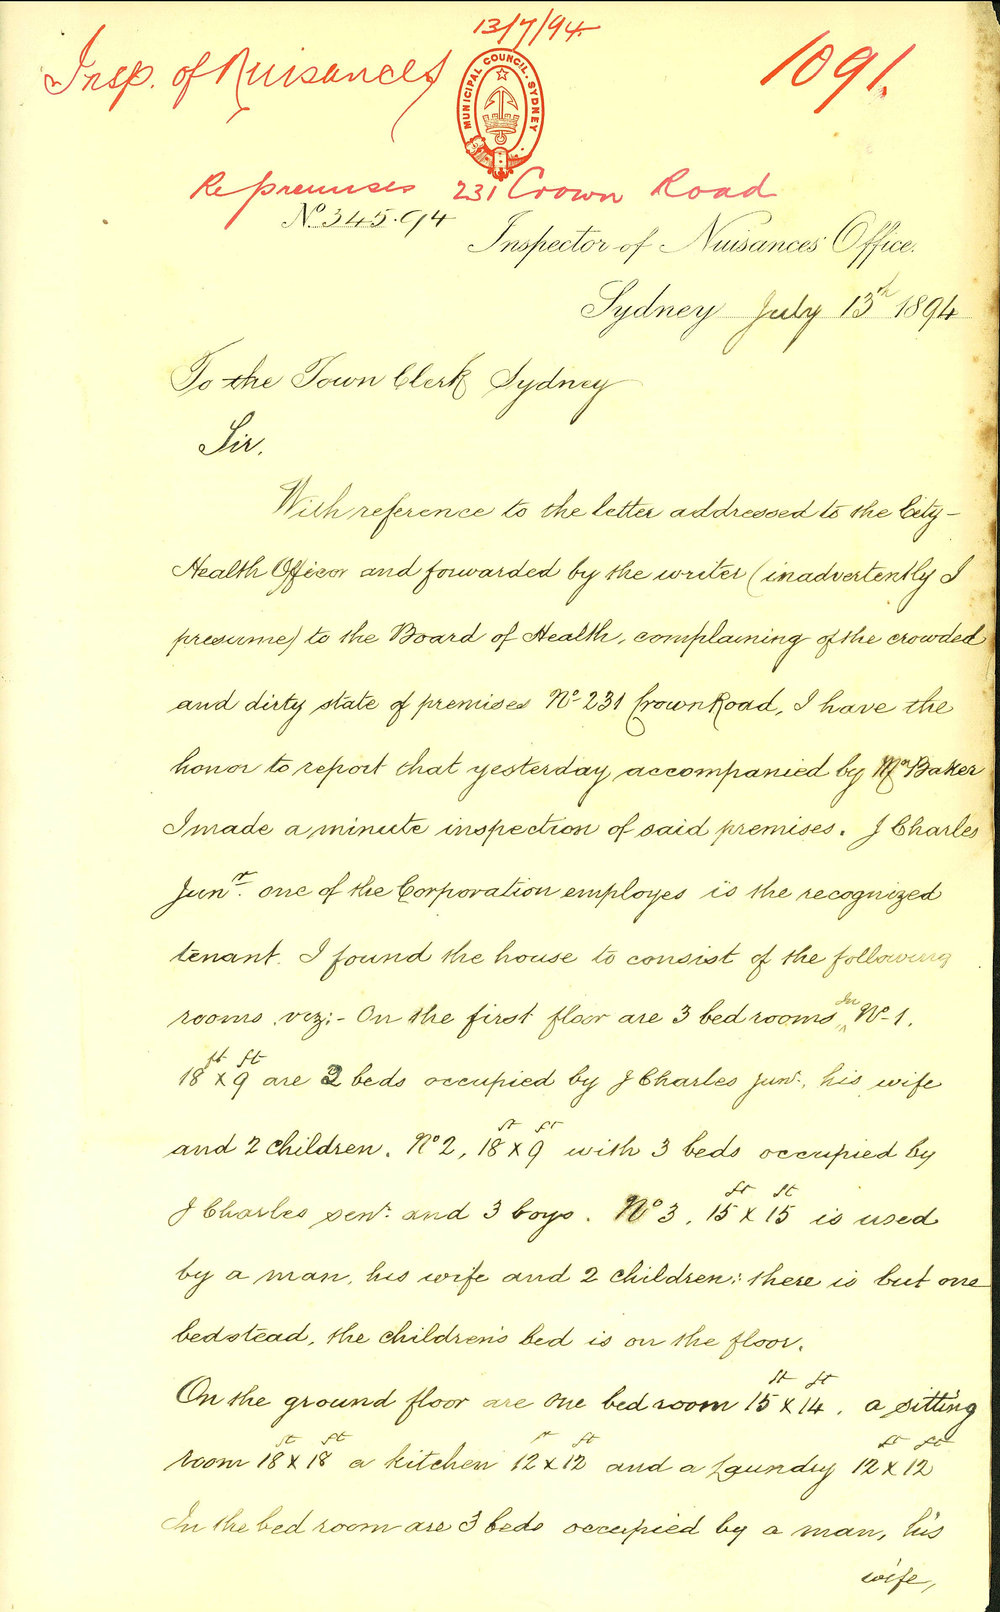 13/7/94
Insp. of Nuisances
1091.
MUNICIPAL COUNCIL. SYDNEY
Re premises 231 Crown Road
No. 345.94
Inspector of Nuisances Office.
Sydney July 13th 1894
To the Town Clerk Sydney
Sir,
With reference to the letter addressed to the City-
Health Officer and forwarded by the writer (inadvertently I
presume) to the Board of Health, complaining of the crowded
and dirty state of premises No 231 Crown Road, I have the
honor to report that yesterday accompanied by Mr Baker
I made a minute inspection of said premises. J Charles
Junr. one of the Corporation employes is the recognized
tenant. I found the house to consist of the following
rooms. viz:- On the first floor are 3 bed rooms In No 1.
18ft x 9ft are 2 beds occupied by J Charles junr. his wife
and 2 children. No 2, 18ft x 9ft with 3 beds occupied by
J Charles senr. and 3 boys. No 3. 15ft x 15ft is used
by a man, his wife and 2 children; there is but one
bedstead, the children's bed is on the floor.
On the ground floor are one bed room 15ft x 14ft. a sitting
room 18ft x 18ft a kitchen 12ft x 12ft and a Laundry 12ft x 12ft
In the bed room are 3 beds occupied by a man, his
wife,